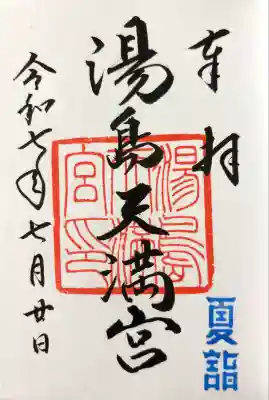 奉拝
夏詣
湯島天満宮
湯島天満宮印
令和七年七月廿日